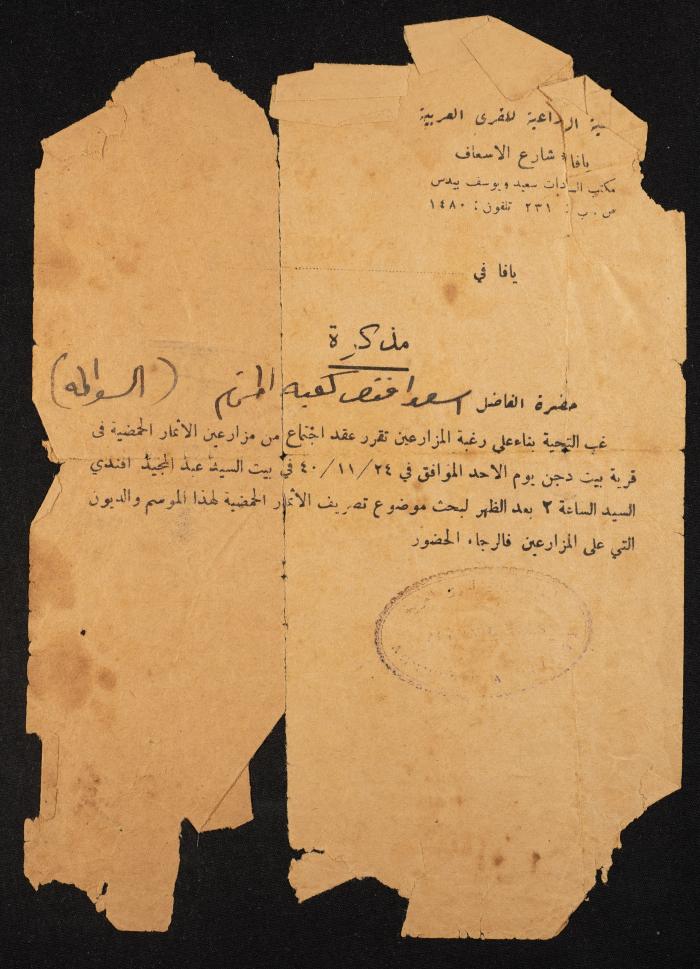 ية الزراعية للقرى العربية
يافا * شارع الاسعاف
مكتب السادات سعيد ويوسف بيدس
ص . ب : ٢٣١ تلفون : ١٤٨٠
يافا في
مذكرة
حضرة الفاضل اسعد افندي كعبه المحترم (السوالمه)
غب التحية بناء على رغبة المزارعين تقرر عقد اجتماع من مزارعين الاثمار الحمضية في
قرية بيت دجن يوم الاحد الموافق في ٢٤/١١/٤٠ في بيت السيد عبد المجيد افندي
السيد الساعة ٢ بعد الظهر لبحث موضوع تصريف الاثمار الحمضية لهذا الموسم والديون
التي على المزارعين فالرجاء الحضور